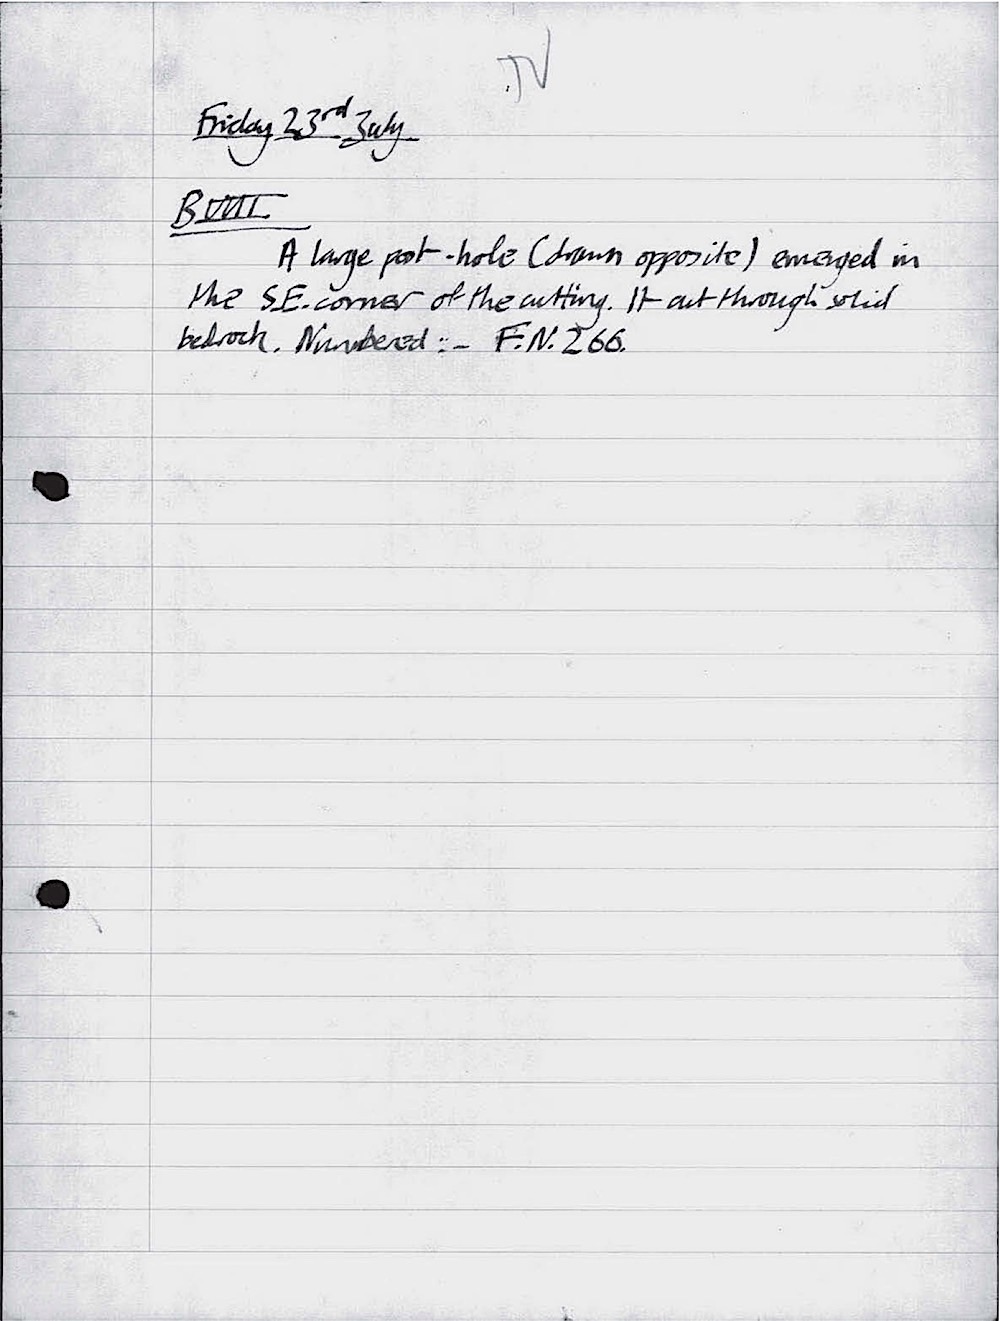 Friday 23rd July
BVIII
A large post-hole (drawn opposite) emerged in
the S.E. corner of the cutting. It cut through solid
bedrock. Numbered :- F.N. 266.